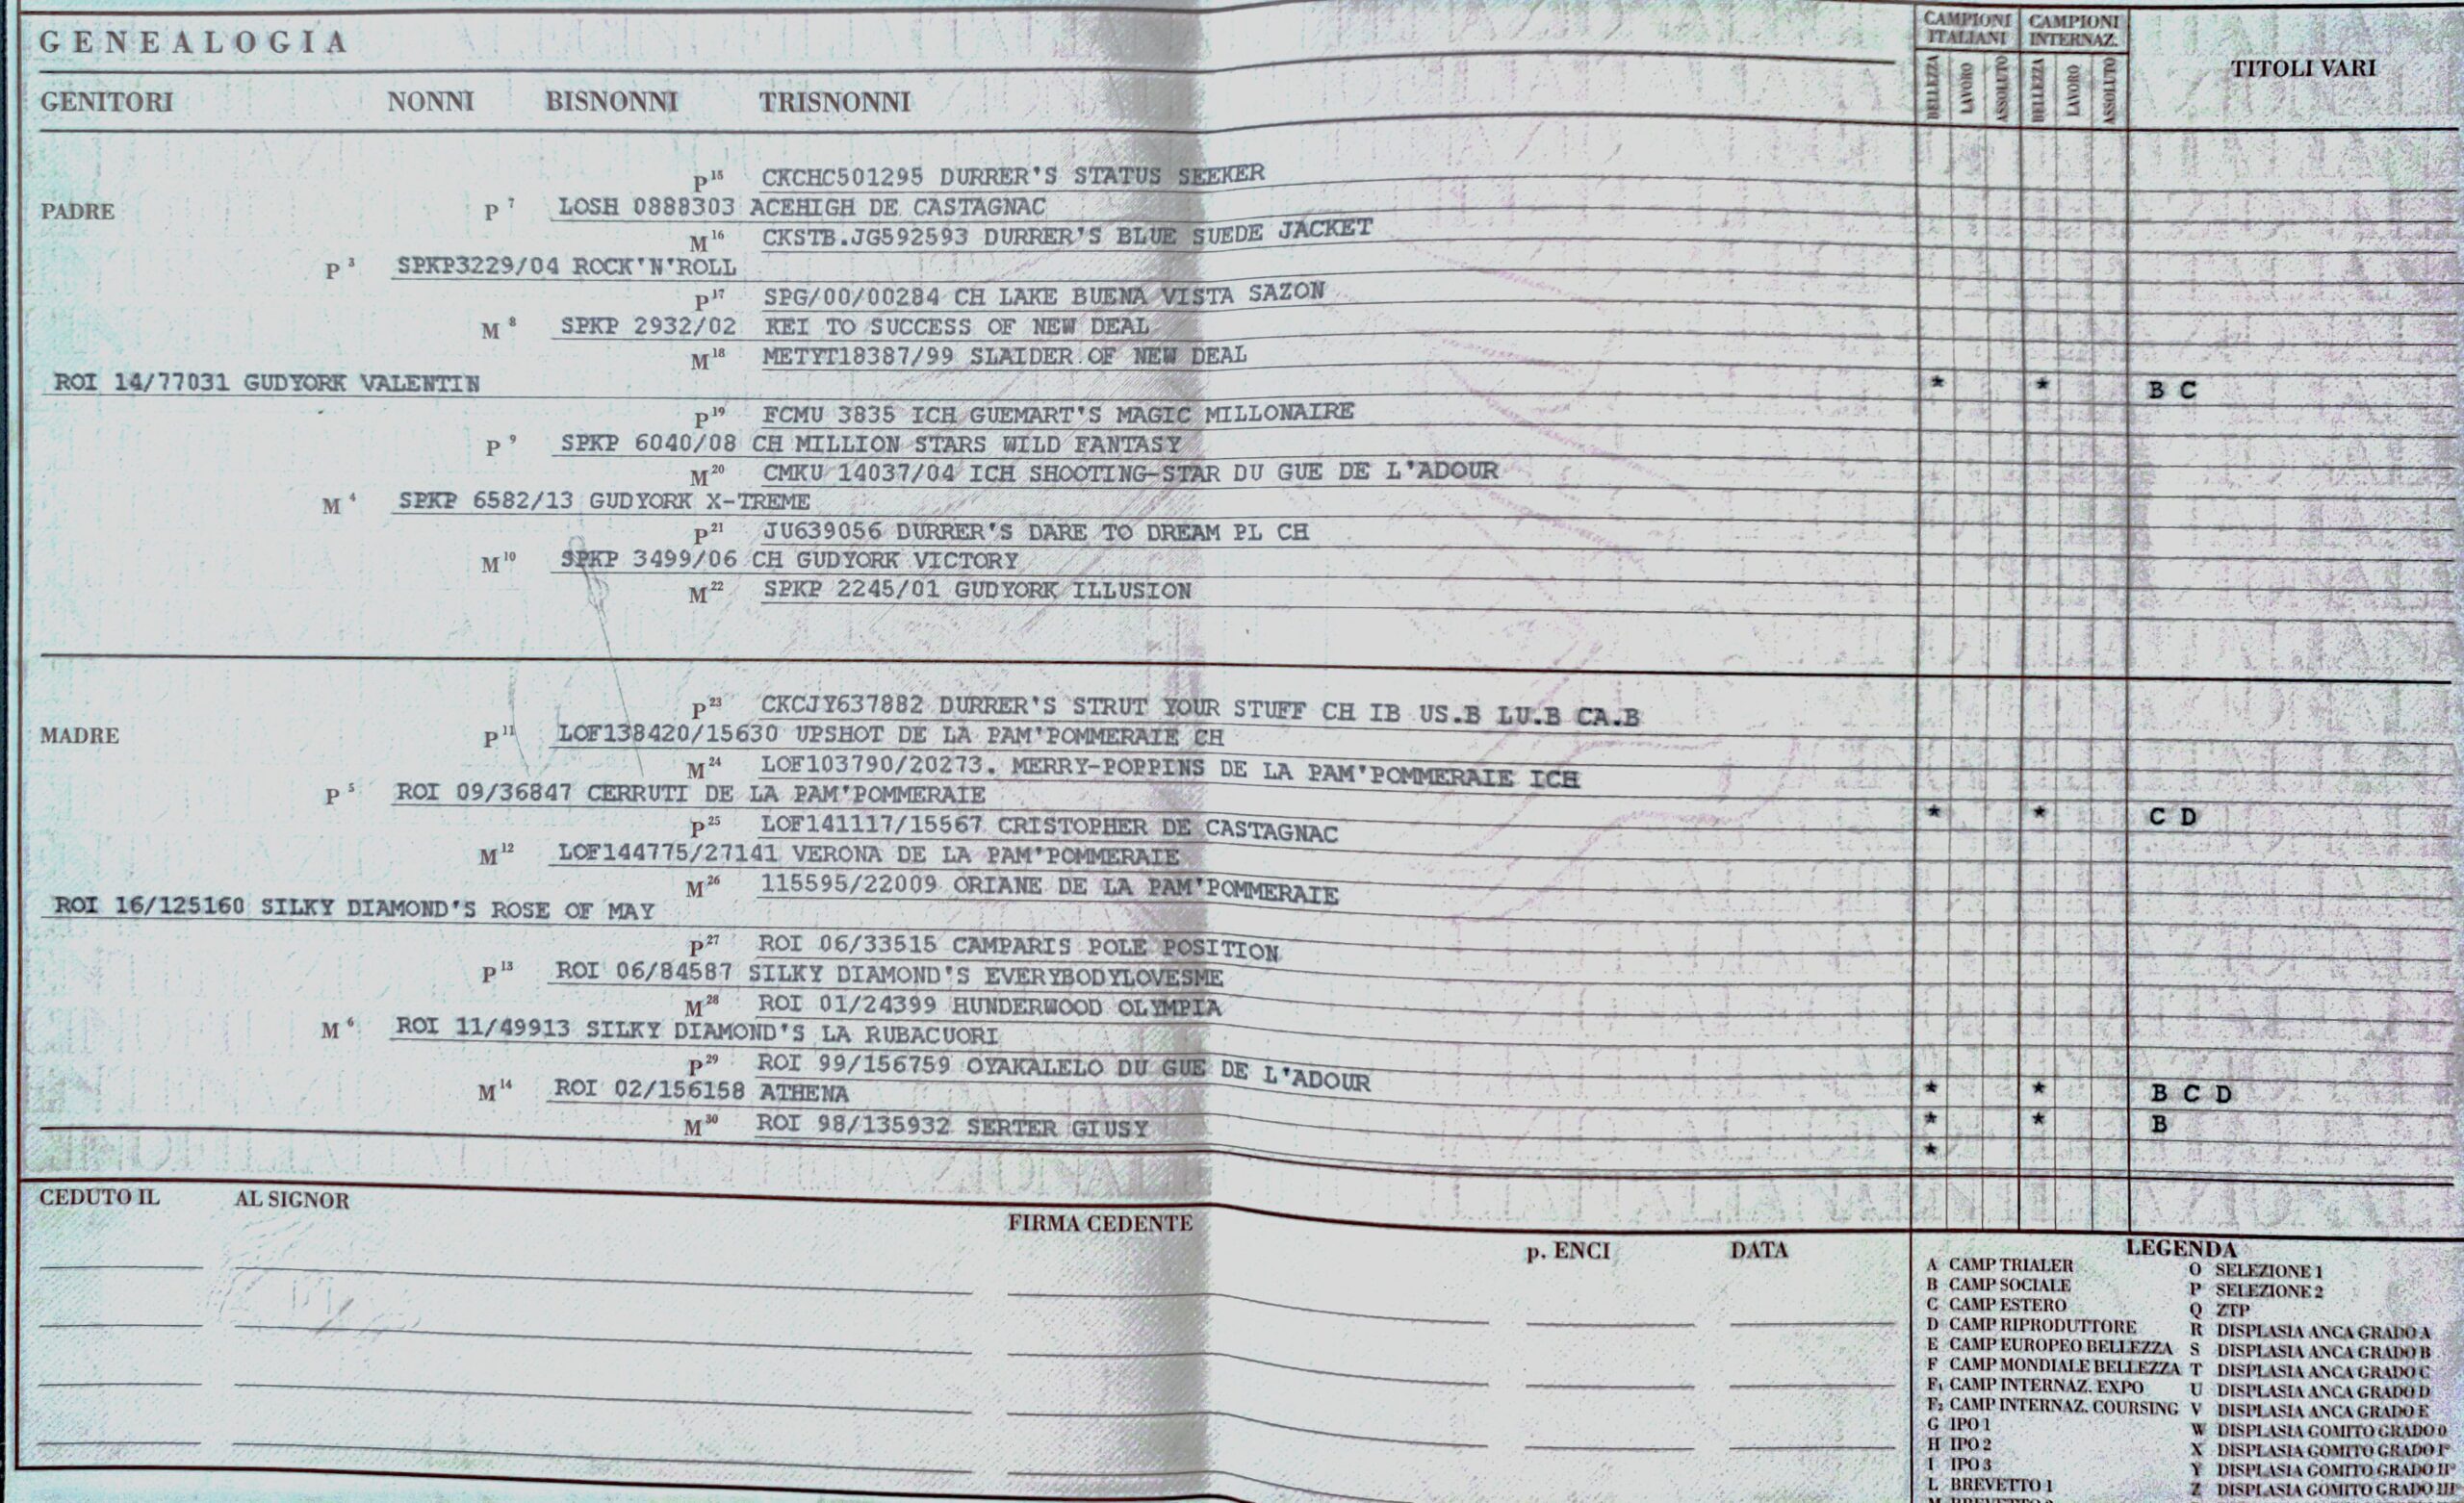 GENEALOGIA
CAMPIONI ITALIANI CAMPIONI INTERNAZ.
BELLEZZA LAVORO ASSOLUTO BELLEZZA LAVORO ASSOLUTO TITOLI VARI
GENITORI NONNI BISNONNI TRISNONNI
P15 CKCHC501295 DURRER'S STATUS SEEKER
PADRE P7 LOSH 0888303 ACEHIGH DE CASTAGNAC
M16 CKSTB.JG592593 DURRER'S BLUE SUEDE JACKET
P3 SPKP3229/04 ROCK'N'ROLL
P17 SPG/00/00284 CH LAKE BUENA VISTA SAZON
M8 SPKP 2932/02 KEI TO SUCCESS OF NEW DEAL
M18 METYT18387/99 SLAIDER OF NEW DEAL
ROI 14/77031 GUDYORK VALENTIN * * B C
P19 FCMU 3835 ICH GUEMART'S MAGIC MILLONAIRE
P9 SPKP 6040/08 CH MILLION STARS WILD FANTASY
M20 CMKU 14037/04 ICH SHOOTING-STAR DU GUE DE L'ADOUR
M4 SPKP 6582/13 GUDYORK X-TREME
P21 JU639056 DURRER'S DARE TO DREAM PL CH
M10 SPKP 3499/06 CH GUDYORK VICTORY
M22 SPKP 2245/01 GUDYORK ILLUSION
P23 CKCJY637882 DURRER'S STRUT YOUR STUFF CH IB US.B LU.B CA.B
MADRE P11 LOF138420/15630 UPSHOT DE LA PAM'POMMERAIE CH
M24 LOF103790/20273. MERRY-POPPINS DE LA PAM'POMMERAIE ICH
P5 ROI 09/36847 CERRUTI DE LA PAM'POMMERAIE * * C D
P25 LOF141117/15567 CRISTOPHER DE CASTAGNAC
M12 LOF144775/27141 VERONA DE LA PAM'POMMERAIE
M26 115595/22009 ORIANE DE LA PAM'POMMERAIE
ROI 16/125160 SILKY DIAMOND'S ROSE OF MAY
P27 ROI 06/33515 CAMPARIS POLE POSITION
P13 ROI 06/84587 SILKY DIAMOND'S EVERYBODYLOVESME
M28 ROI 01/24399 HUNDERWOOD OLYMPIA
M6 ROI 11/49913 SILKY DIAMOND'S LA RUBACUORI
P29 ROI 99/156759 OYAKALELO DU GUE DE L'ADOUR * * B C D
M14 ROI 02/156158 ATHENA * * B
M30 ROI 98/135932 SERTER GIUSY *
CEDUTO IL AL SIGNOR FIRMA CEDENTE p. ENCI DATA
LEGENDA
A CAMP TRIALER O SELEZIONE 1
B CAMP SOCIALE P SELEZIONE 2
C CAMP ESTERO Q ZTP
D CAMP RIPRODUTTORE R DISPLASIA ANCA GRADO A
E CAMP EUROPEO BELLEZZA S DISPLASIA ANCA GRADO B
F CAMP MONDIALE BELLEZZA T DISPLASIA ANCA GRADO C
F1 CAMP INTERNAZ. EXPO U DISPLASIA ANCA GRADO D
F2 CAMP INTERNAZ. COURSING V DISPLASIA ANCA GRADO E
G IPO 1 W DISPLASIA GOMITO GRADO 0
H IPO 2 X DISPLASIA GOMITO GRADO I°
I IPO 3 Y DISPLASIA GOMITO GRADO II°
L BREVETTO 1 Z DISPLASIA GOMITO GRADO III